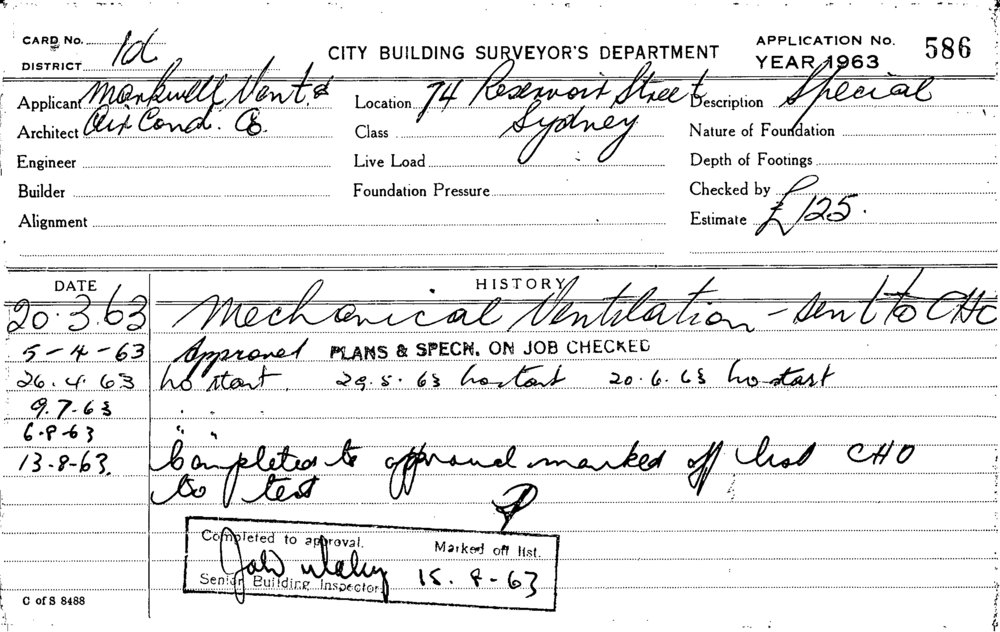 CARD No. 1d CITY BUILDING SURVEYOR'S DEPARTMENT APPLICATION No. 586
DISTRICT YEAR 1963
Applicant Markwell Vent. & Location 74 Reservoir Street Description Special
Architect Air Cond. Co. Class Sydney Nature of Foundation
Engineer Live Load Depth of Footings
Builder Foundation Pressure Checked by
Alignment Estimate £125.
DATE HISTORY
20.3.63 Mechanical Ventilation - sent to CHO
5-4-63 Approved PLANS & SPECN. ON JOB CHECKED
26.4.63 no start. 29.5.63 no start 20.6.63 no start
9.7.63 " "
6-8-63 " "
13-8-63. Completed to approval marked off list CHO
to test
Completed to approval. Marked off list.
15.8-63
Senior Building Inspector.
C of S 8488